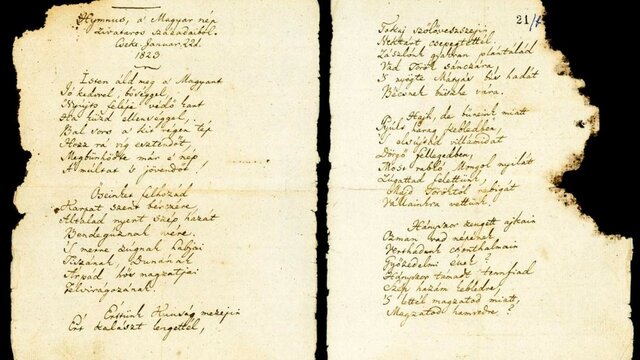 Hymnus, a' Magyar nép
Zivataros századaiból.
Cseke, Januar. 22d.
1823
Isten áldd meg a' Magyart
Jó kedvvel, bőséggel,
Nyújts feléje védő kart
Ha küzd ellenséggel,
Bal sors a' kit régen tép
Hozz rá víg esztendőt,
Megbűnhődte már e' nép
A' múltat 's jövendőt!
Őseinket felhozád
Kárpát szent bérczére,
Általad nyert szép hazát
Bendegúznak vére.
'S merre zúgnak habjai
Tiszának, Dunának
Árpád hős magzatjai
Felvirágozának.
Értünk Kunság mezején
Ért kalászt lengettél,
21/
Tokaj szőlővesszején
Nektárt csepegtettél.
Zászlónk gyakran plántálád
Vad Török sánczára,
'S nyögte Mátyás bús hadát
Bécsnek büszke vára.
Hajh, de bűneink miatt
Gyúlt harag kebledben,
'S elsújtád villámidat
Dörgő fellegedben,
Most rabló Mongol nyilát
Zúgattad felettünk,
Majd Töröktől rabigát
Vállainkra vettünk.
Hányszor zengett ajkain
Ozman vad népének
Vert hadunk csonthalmain
Győzedelmi ének!
Hányszor támadt tenn fiad
Szép hazám kebledre,
'S lettél magzatod miatt,
Magzatod hamvvedre?